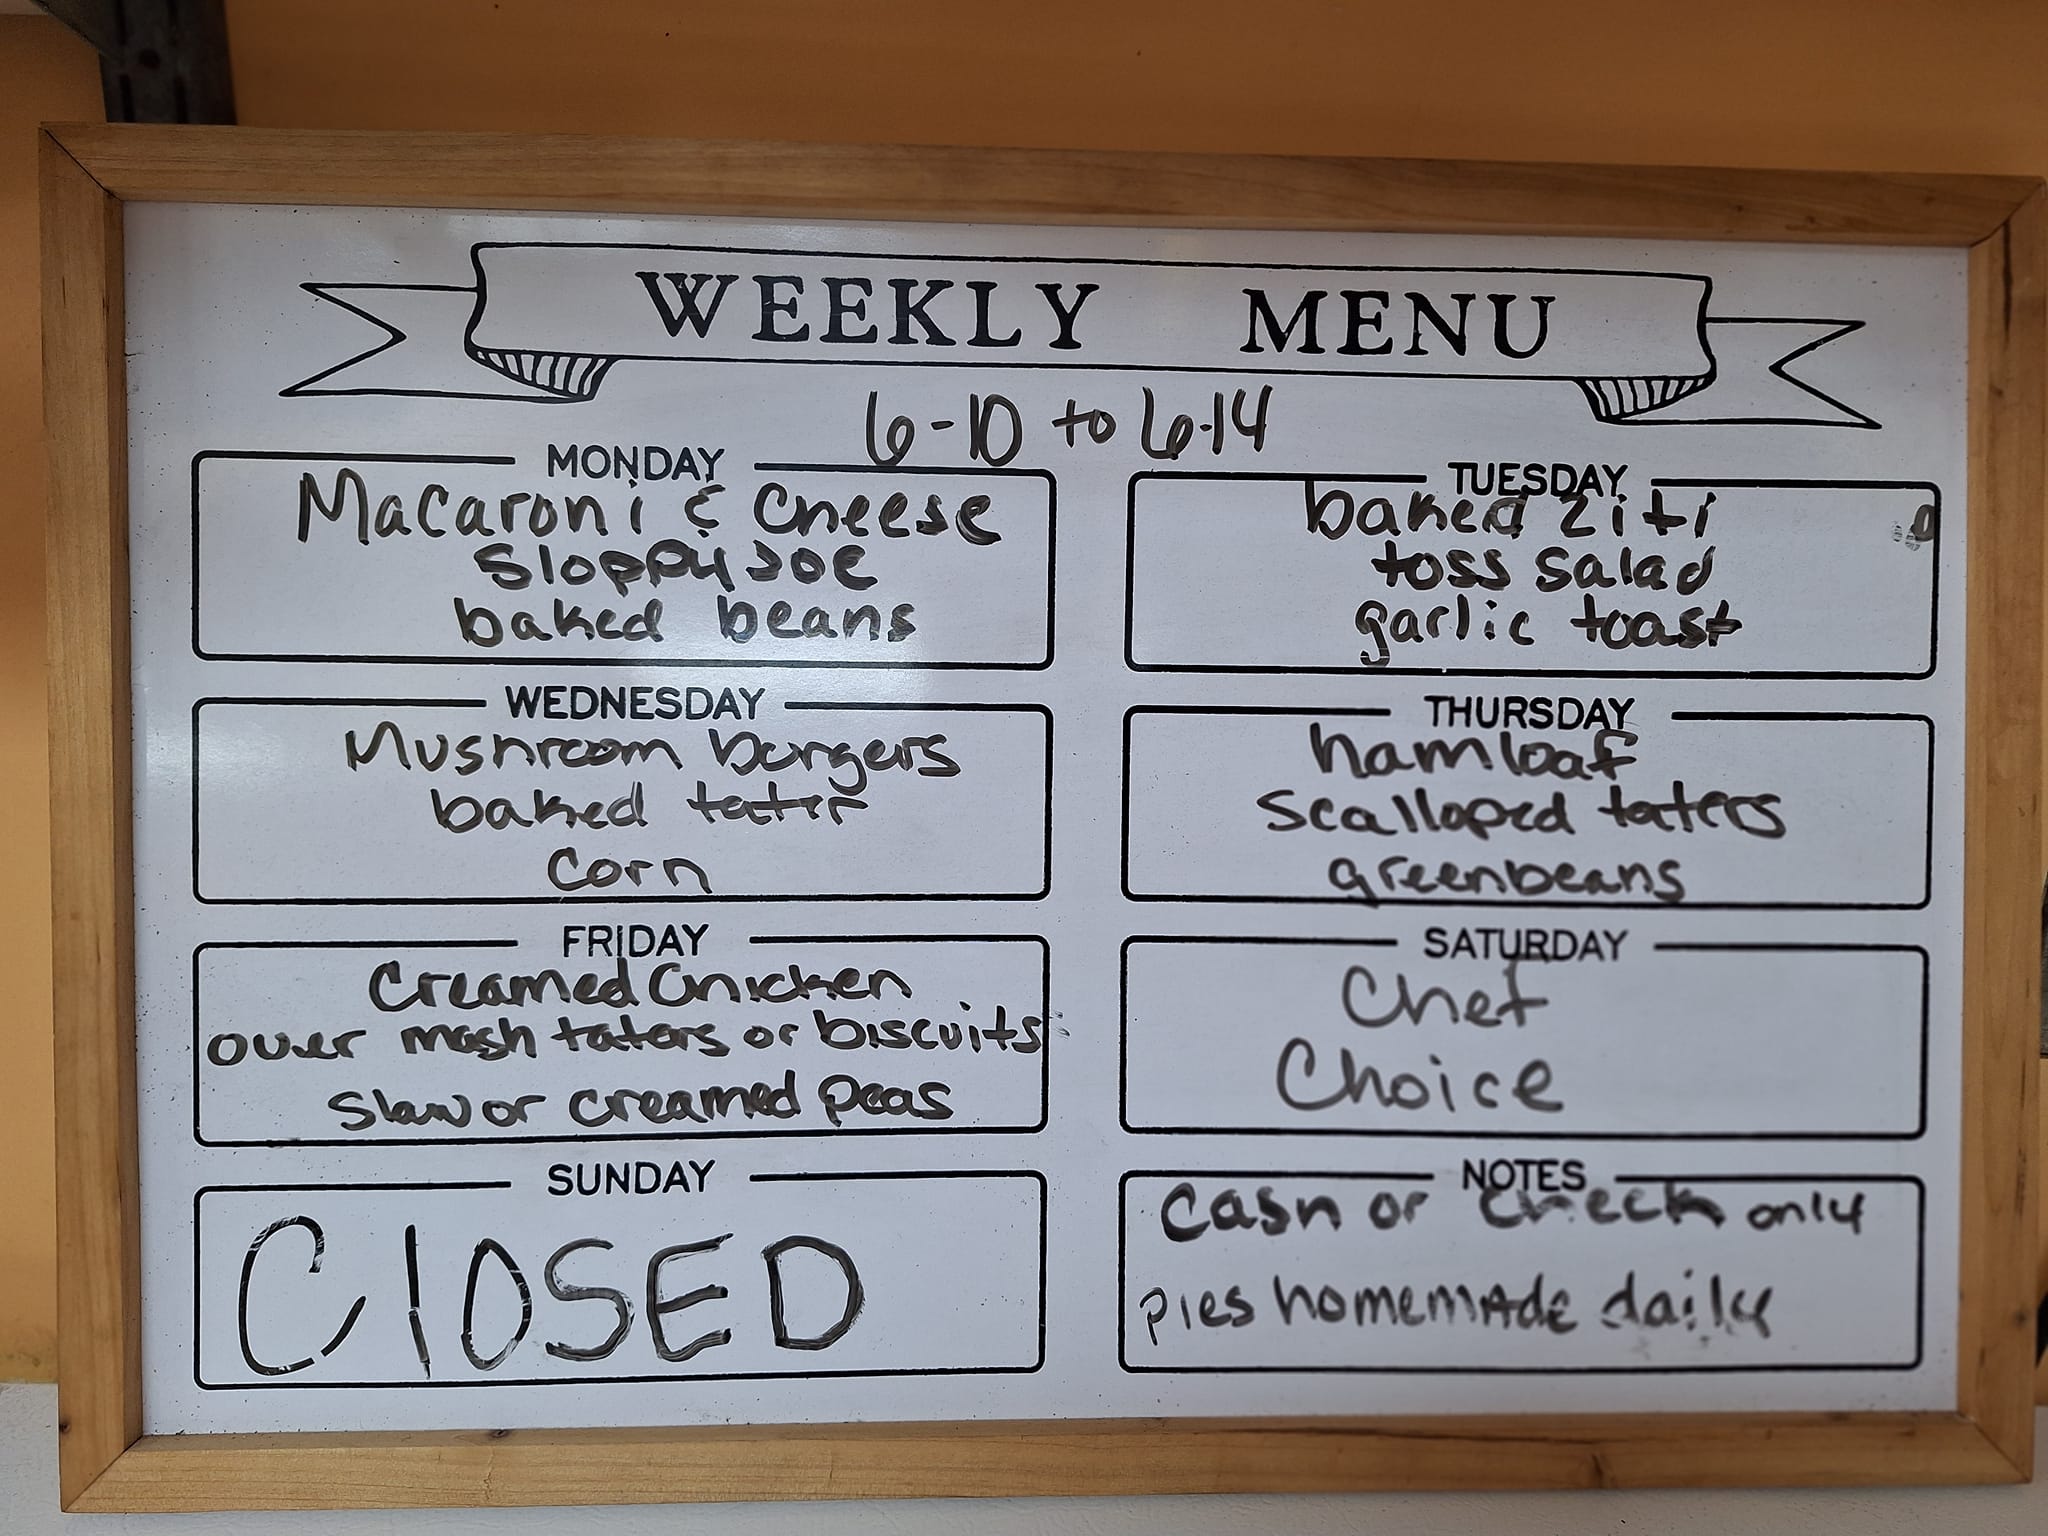 WEEKLY MENU
6-10 to 6-14
MONDAY
Macaroni & Cheese
Sloppy Joe
baked beans
TUESDAY
baked ziti
toss salad
garlic toast
WEDNESDAY
Mushroom burgers
baked tater
corn
THURSDAY
hamloaf
Scalloped taters
greenbeans
FRIDAY
Creamed Chicken
over mash taters or biscuits
Slaw or creamed peas
SATURDAY
Chef
Choice
SUNDAY
ClOSED
NOTES
Cash or check only
pies homemAde daily